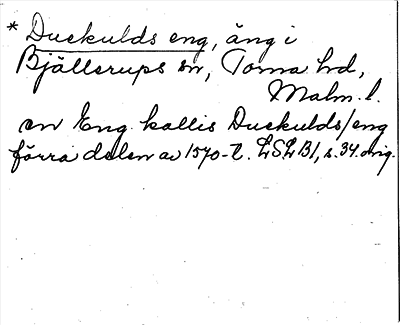 * Duckulds eng, äng i
Bjällerups sn, Torna hd,
Malm. l.
en Eng kallis Duckulds/eng
förra delen av 1570-t. LSLB1, s. 34. orig.